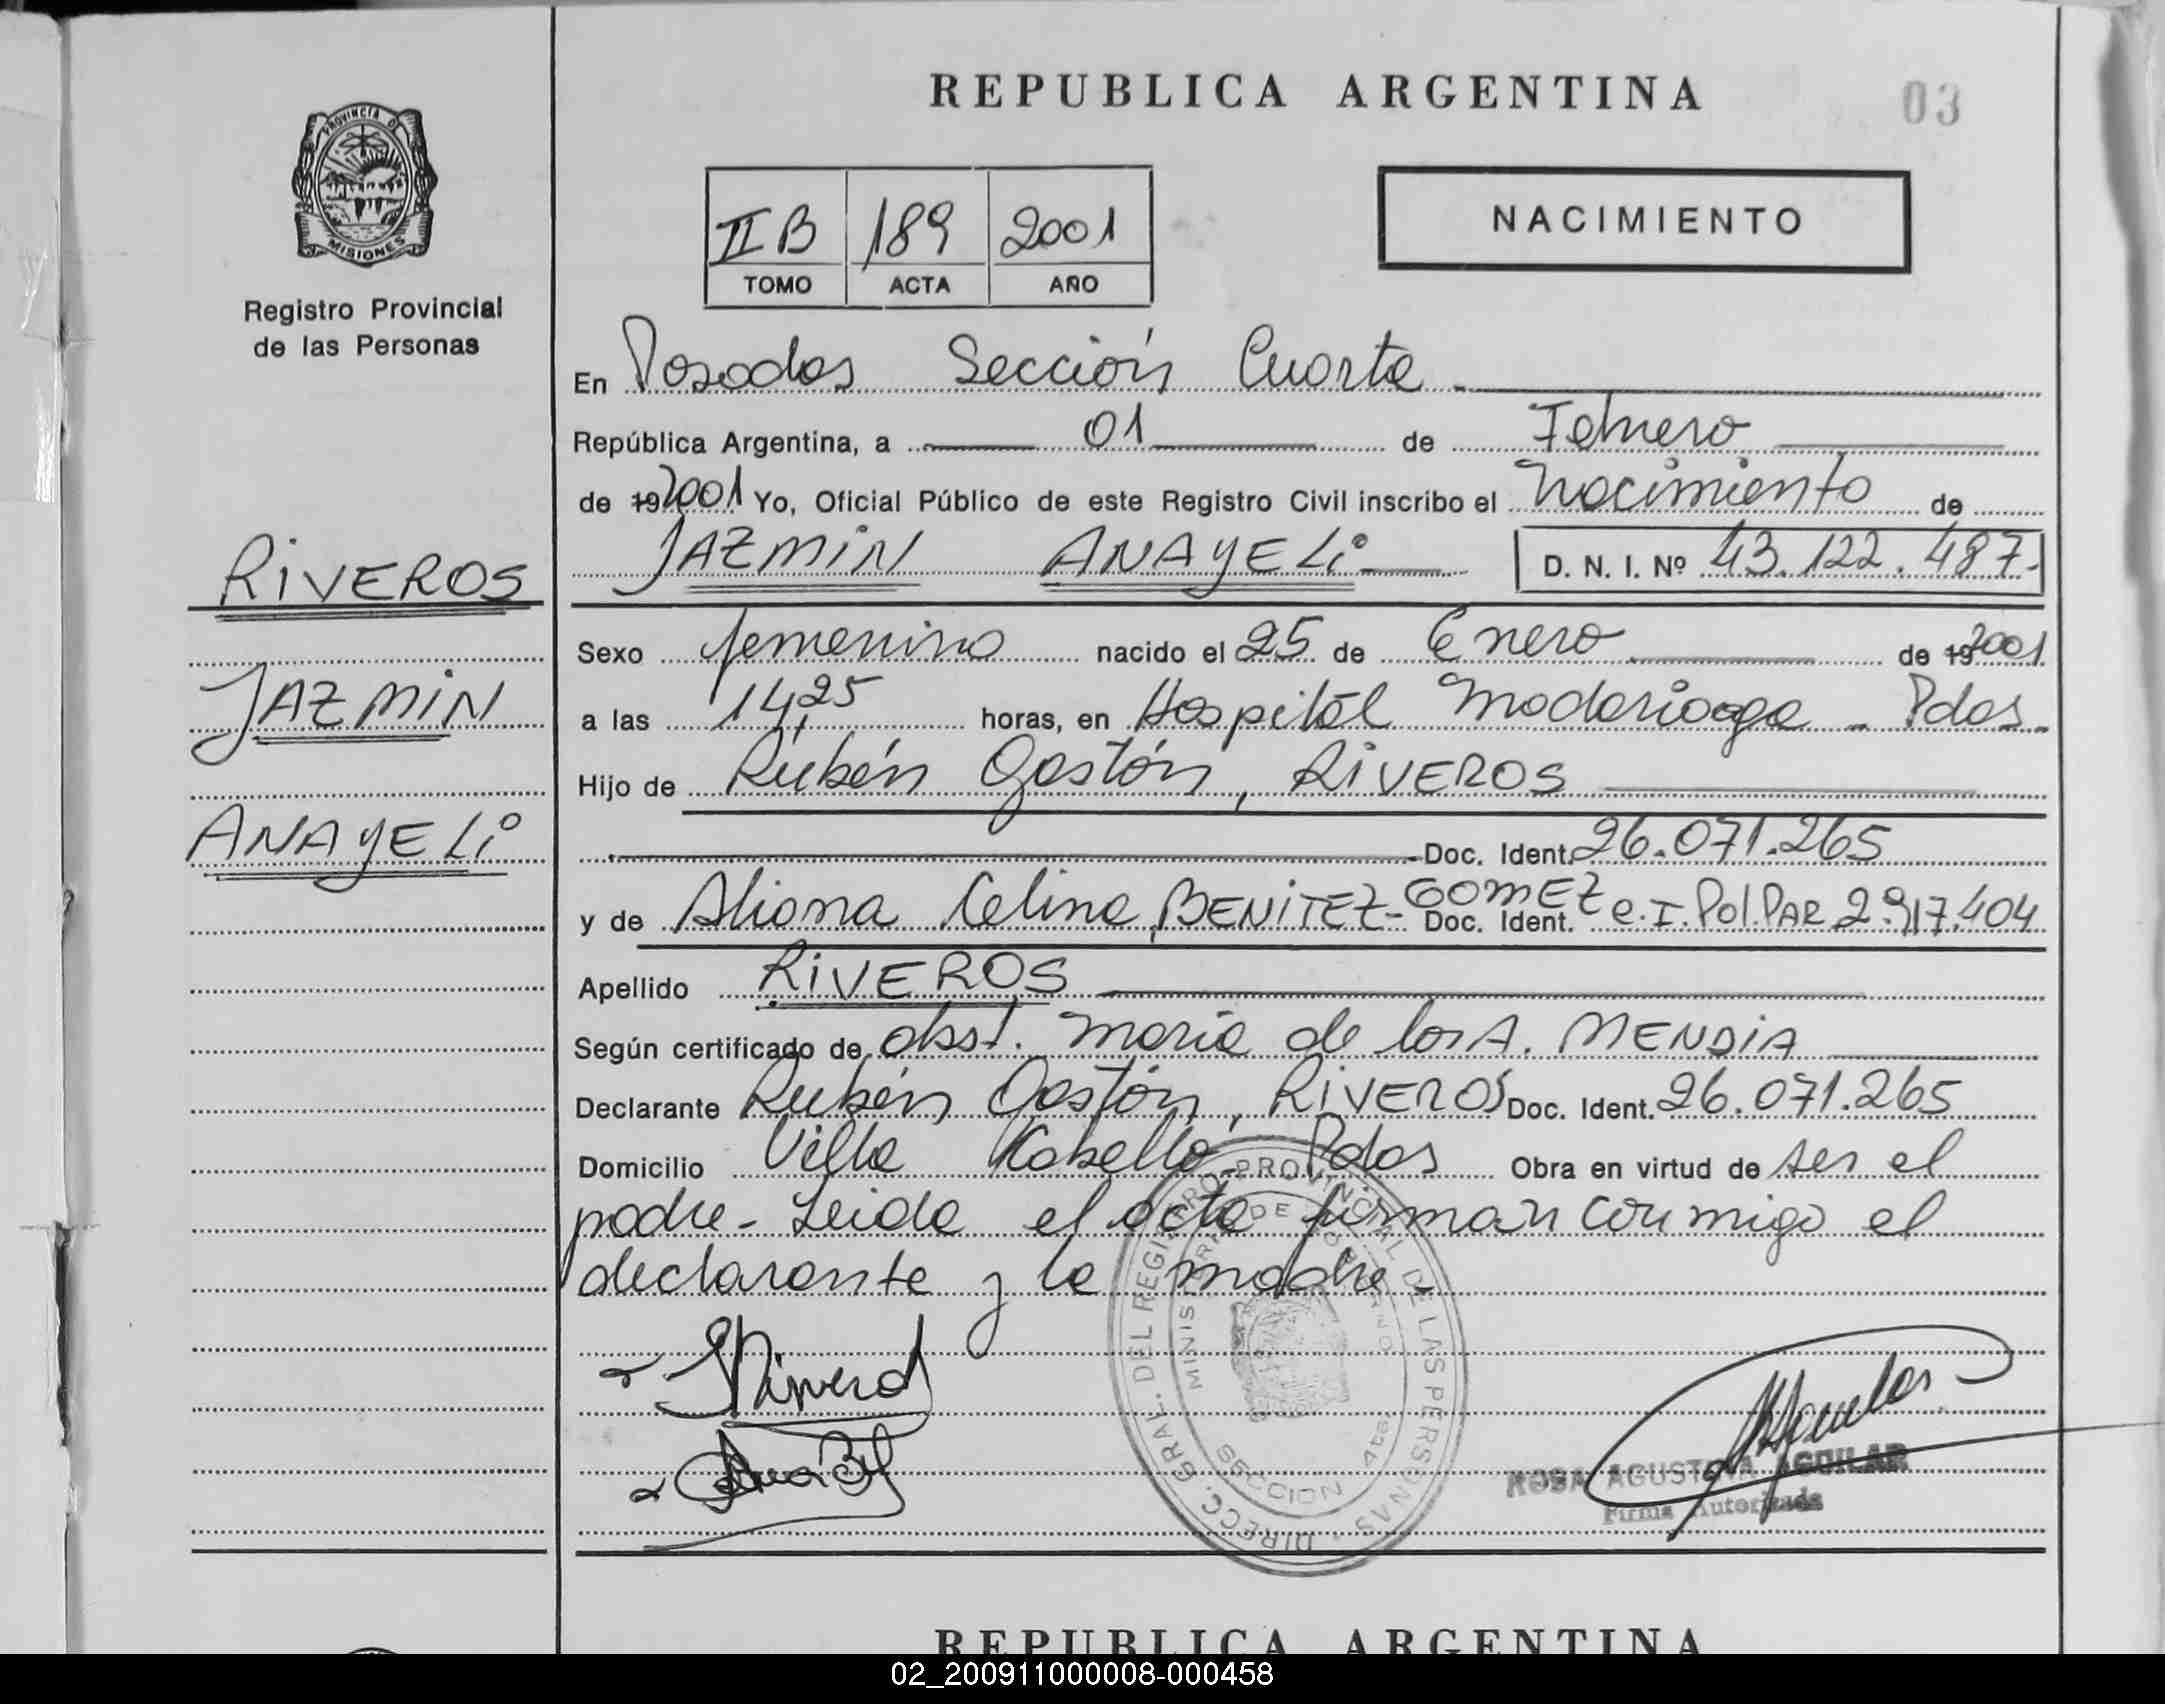 REPUBLICA ARGENTINA
03
PROVINCIA DE
MISIONES
Registro Provincial
de las Personas
II B 189 2001
TOMO ACTA AÑO
NACIMIENTO
En Posadas Sección Cuarta
República Argentina, a 01 de Febrero
de 19 2001 Yo, Oficial Público de este Registro Civil inscribo el Nacimiento de
JAZMIN ANAYELI D. N. I. Nº 43.122.487.-
RIVEROS
JAZMIN
ANAYELI
Sexo femenino nacido el 25 de Enero de 19 2001
a las 14,25 horas, en Hospital Madariaga - Pdas.
Hijo de Rubén Gastón, RIVEROS
Doc. Ident. 26.071.265
y de Celina, BENITEZ-GOMEZ Doc. Ident. C.I.Pol.PAR 2.917.404
Apellido RIVEROS
Según certificado de obst. Maria de los A. MENDIA
Declarante Rubén Gastón, RIVEROS Doc. Ident. 26.071.265
Domicilio Villa Kabelló Pdas Obra en virtud de ser el
padre - Leida el acta firman conmigo el
declarante y la madre.
DIRECC. GRAL. DEL REGISTRO PROVINCIAL DE LAS PERSONAS
MINISTERIO DE GOBIERNO
SECCION 4ta.
ROSA AGUSTINA AGUILAR
Firma Autorizada
REPUBLICA ARGENTINA
02_200911000008-000458